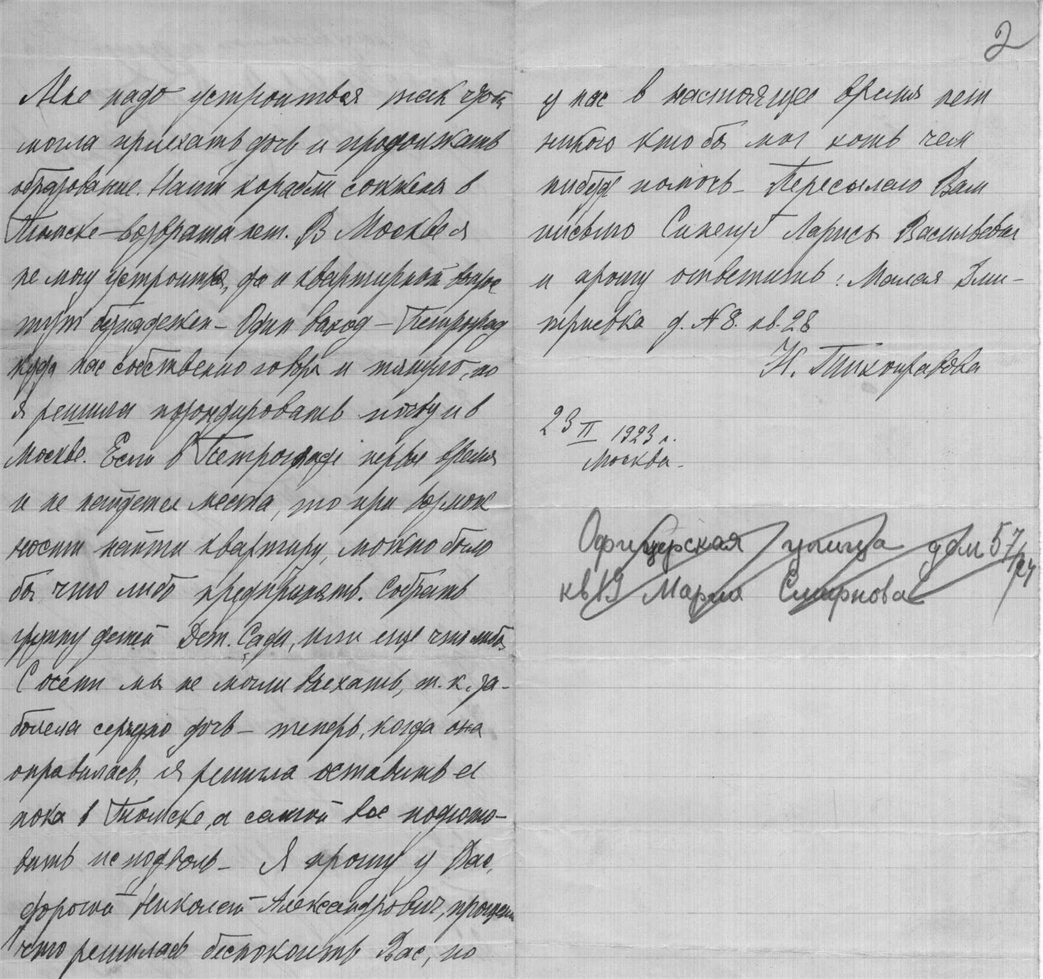 Мне надо устроиться так чтоб
могла приехать дочь и продолжать
образование. Наши корабли сожжены в
Томске – возврата нет. В Москве я
не могу устроиться, да и квартирный вопрос
тут безнадежен – Один выход – Петроград
куда нас собственно говоря и тянуло, но
я решила позондировать почву и в
Москве. Если в Петрограде первое время
и не найдется места, то при возмож
ности найти квартиру можно было
бы что либо предпринять. Собрать
группу детей Дет. Сада, или еще что либо.
С осени мы не могли выехать, т. к. за-
болела серьезно дочь – теперь, когда она
оправилась, я решила оставить ее
пока в Томске, а самой все подгото-
вить исподволь – Я прошу у Вас,
дорогой Николай Александрович, прощения
что решилась беспокоить Вас, но
2
у нас в настоящее время нет
никого кто бы мог хоть чем
нибудь помочь – Пересылаю Вам
письмо Ларисы Васильевны
и прошу ответить: Малая Дми-
тровка д. № 8. кв. 28
Н. Тихонравова
23 II 1923 г.
Москва.
Офицерская улица дом 57/24
кв 19 Мария Смирнова